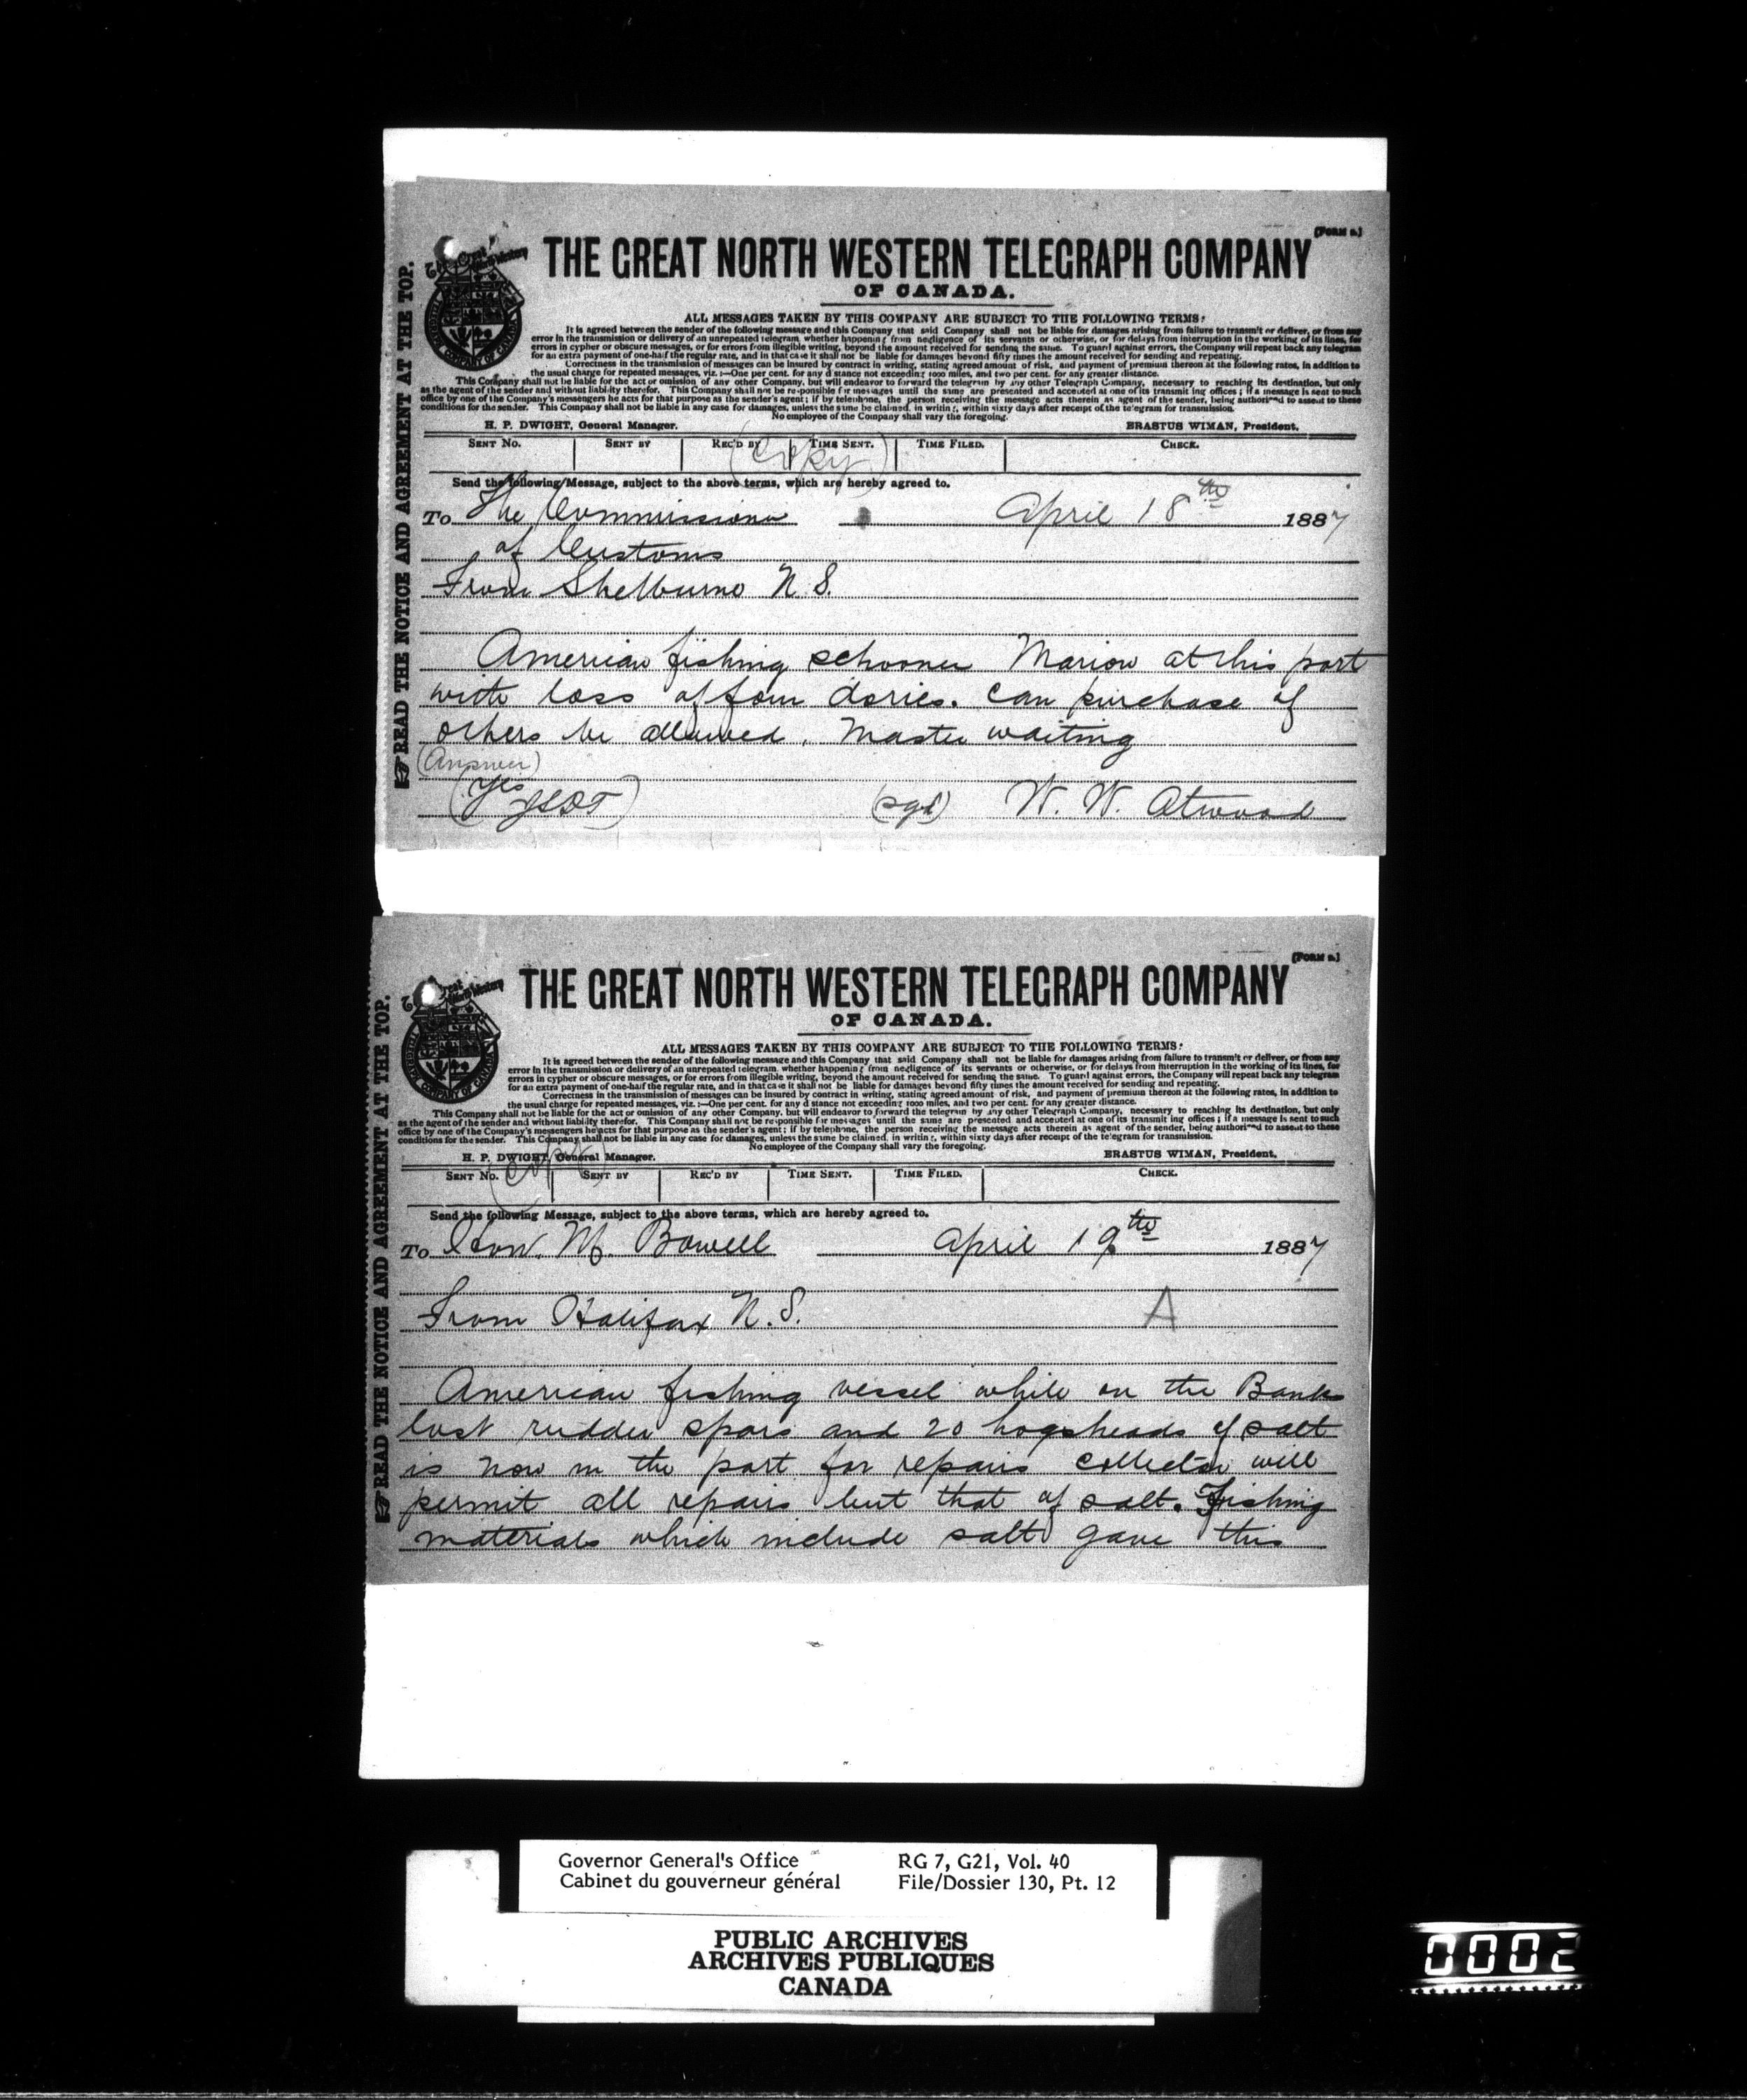 (FORM 2.)
The Great North Western
THE GREAT NORTH WESTERN TELEGRAPH COMPANY
OF CANADA.
TELEGRAPH COMPANY OF CANADA
ALL MESSAGES TAKEN BY THIS COMPANY ARE SUBJECT TO THE FOLLOWING TERMS:
It is agreed between the sender of the following message and this Company that said Company shall not be liable for damages arising from failure to transmit or deliver, or from any
error in the transmission or delivery of an unrepeated telegram, whether happening from negligence of its servants or otherwise, or for delays from interruption in the working of its lines, for
errors in cypher or obscure messages, or for errors from illegible writing, beyond the amount received for sending the same. To guard against errors, the Company will repeat back any telegram
for an extra payment of one-half the regular rate, and in that case it shall not be liable for damages beyond fifty times the amount received for sending and repeating.
Correctness in the transmission of messages can be insured by contract in writing, stating agreed amount of risk, and payment of premium thereon at the following rates, in addition to
the usual charge for repeated messages, viz. :—One per cent. for any distance not exceeding 1000 miles, and two per cent. for any greater distance.
This Company shall not be liable for the act or omission of any other Company, but will endeavor to forward the telegram by any other Telegraph Company, necessary to reaching its destination, but only
as the agent of the sender and without liability therefor. This Company shall not be responsible for messages until the same are presented and accepted at one of its transmitting offices; if a message is sent to such
office by one of the Company's messengers he acts for that purpose as the sender's agent; if by telephone, the person receiving the message acts therein as agent of the sender, being authorized to assent to these
conditions for the sender. This Company shall not be liable in any case for damages, unless the same be claimed, in writing, within sixty days after receipt of the telegram for transmission.
No employee of the Company shall vary the foregoing.
H. P. DWIGHT, General Manager. ERASTUS WIMAN, President.
SENT NO. SENT BY REC'D BY TIME SENT. TIME FILED. CHECK.
(Copy)
Send the following Message, subject to the above terms, which are hereby agreed to.
To The Commissioner April 18th 1887
of Customs
From Shelburne N.S.
American fishing schooner Marion at this port
with loss of four dories. Can purchase of
others be allowed. Master waiting
(Answer)
(Yes (sgd) W. W. Atwood
READ THE NOTICE AND AGREEMENT AT THE TOP.
(FORM 2.)
Great North Western
THE GREAT NORTH WESTERN TELEGRAPH COMPANY
OF CANADA.
TELEGRAPH COMPANY OF CANADA
ALL MESSAGES TAKEN BY THIS COMPANY ARE SUBJECT TO THE FOLLOWING TERMS:
It is agreed between the sender of the following message and this Company that said Company shall not be liable for damages arising from failure to transmit or deliver, or from any
error in the transmission or delivery of an unrepeated telegram, whether happening from negligence of its servants or otherwise, or for delays from interruption in the working of its lines, for
errors in cypher or obscure messages, or for errors from illegible writing, beyond the amount received for sending the same. To guard against errors, the Company will repeat back any telegram
for an extra payment of one-half the regular rate, and in that case it shall not be liable for damages beyond fifty times the amount received for sending and repeating.
Correctness in the transmission of messages can be insured by contract in writing, stating agreed amount of risk, and payment of premium thereon at the following rates, in addition to
the usual charge for repeated messages, viz. :—One per cent. for any distance not exceeding 1000 miles, and two per cent. for any greater distance.
This Company shall not be liable for the act or omission of any other Company, but will endeavor to forward the telegram by any other Telegraph Company, necessary to reaching its destination, but only
as the agent of the sender and without liability therefor. This Company shall not be responsible for messages until the same are presented and accepted at one of its transmitting offices; if a message is sent to such
office by one of the Company's messengers he acts for that purpose as the sender's agent; if by telephone, the person receiving the message acts therein as agent of the sender, being authorized to assent to these
conditions for the sender. This Company shall not be liable in any case for damages, unless the same be claimed, in writing, within sixty days after receipt of the telegram for transmission.
No employee of the Company shall vary the foregoing.
H. P. DWIGHT, General Manager. ERASTUS WIMAN, President.
SENT NO. SENT BY REC'D BY TIME SENT. TIME FILED. CHECK.
(Copy)
Send the following Message, subject to the above terms, which are hereby agreed to.
To Hon. M. Bowell April 19th 1887
From Halifax N.S. A
American fishing vessel while on the Banks
lost rudder spars and 20 hogsheads of salt
is now in the port for repairs collector will
permit all repairs but that of salt. Fishing
materials which include salt gave this
READ THE NOTICE AND AGREEMENT AT THE TOP.
Governor General's Office RG 7, G21, Vol. 40
Cabinet du gouverneur général File/Dossier 130, Pt. 12
PUBLIC ARCHIVES
ARCHIVES PUBLIQUES
CANADA
0002